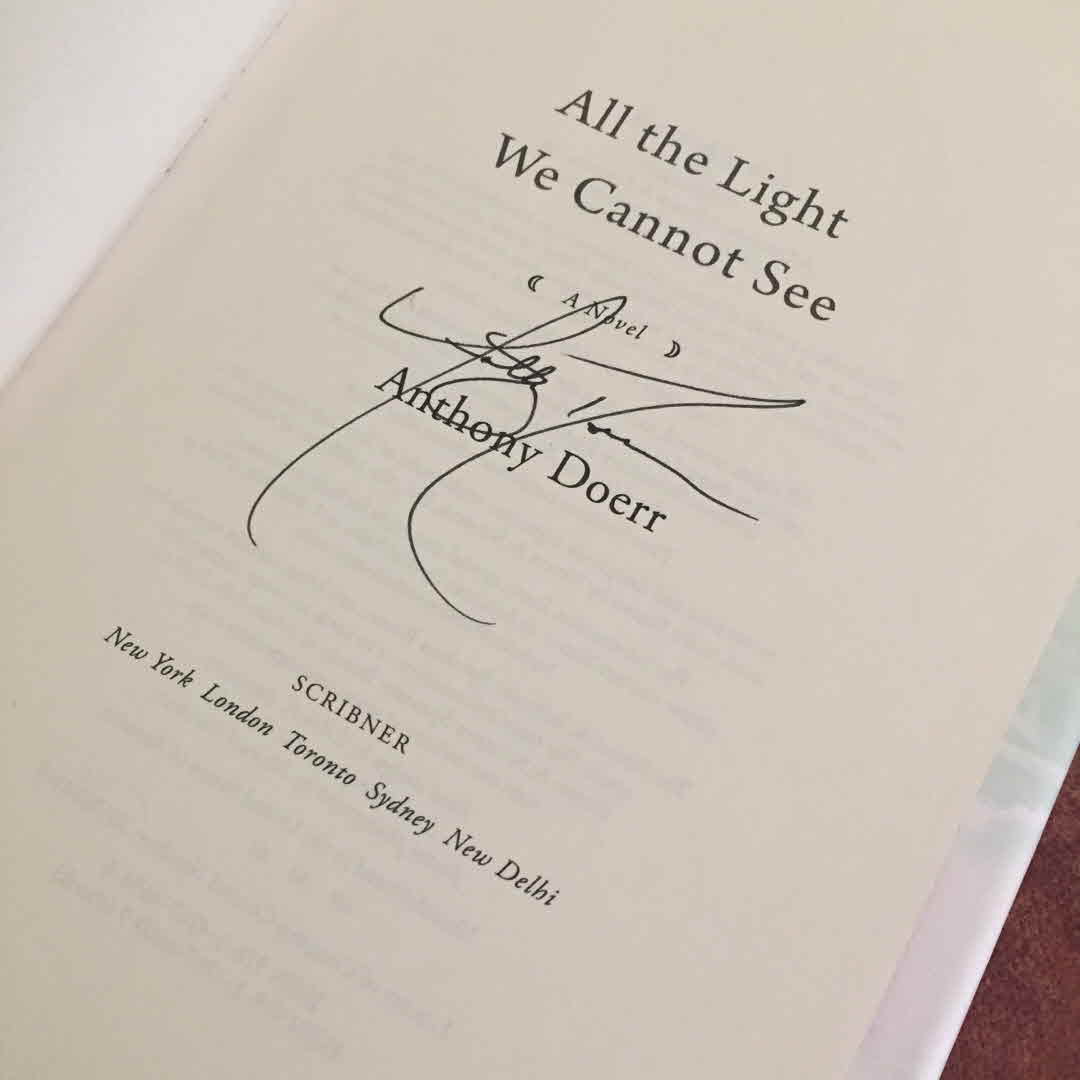 All the Light
We Cannot See
A Novel
Anthony Doerr
SCRIBNER
New York London Toronto Sydney New Delhi